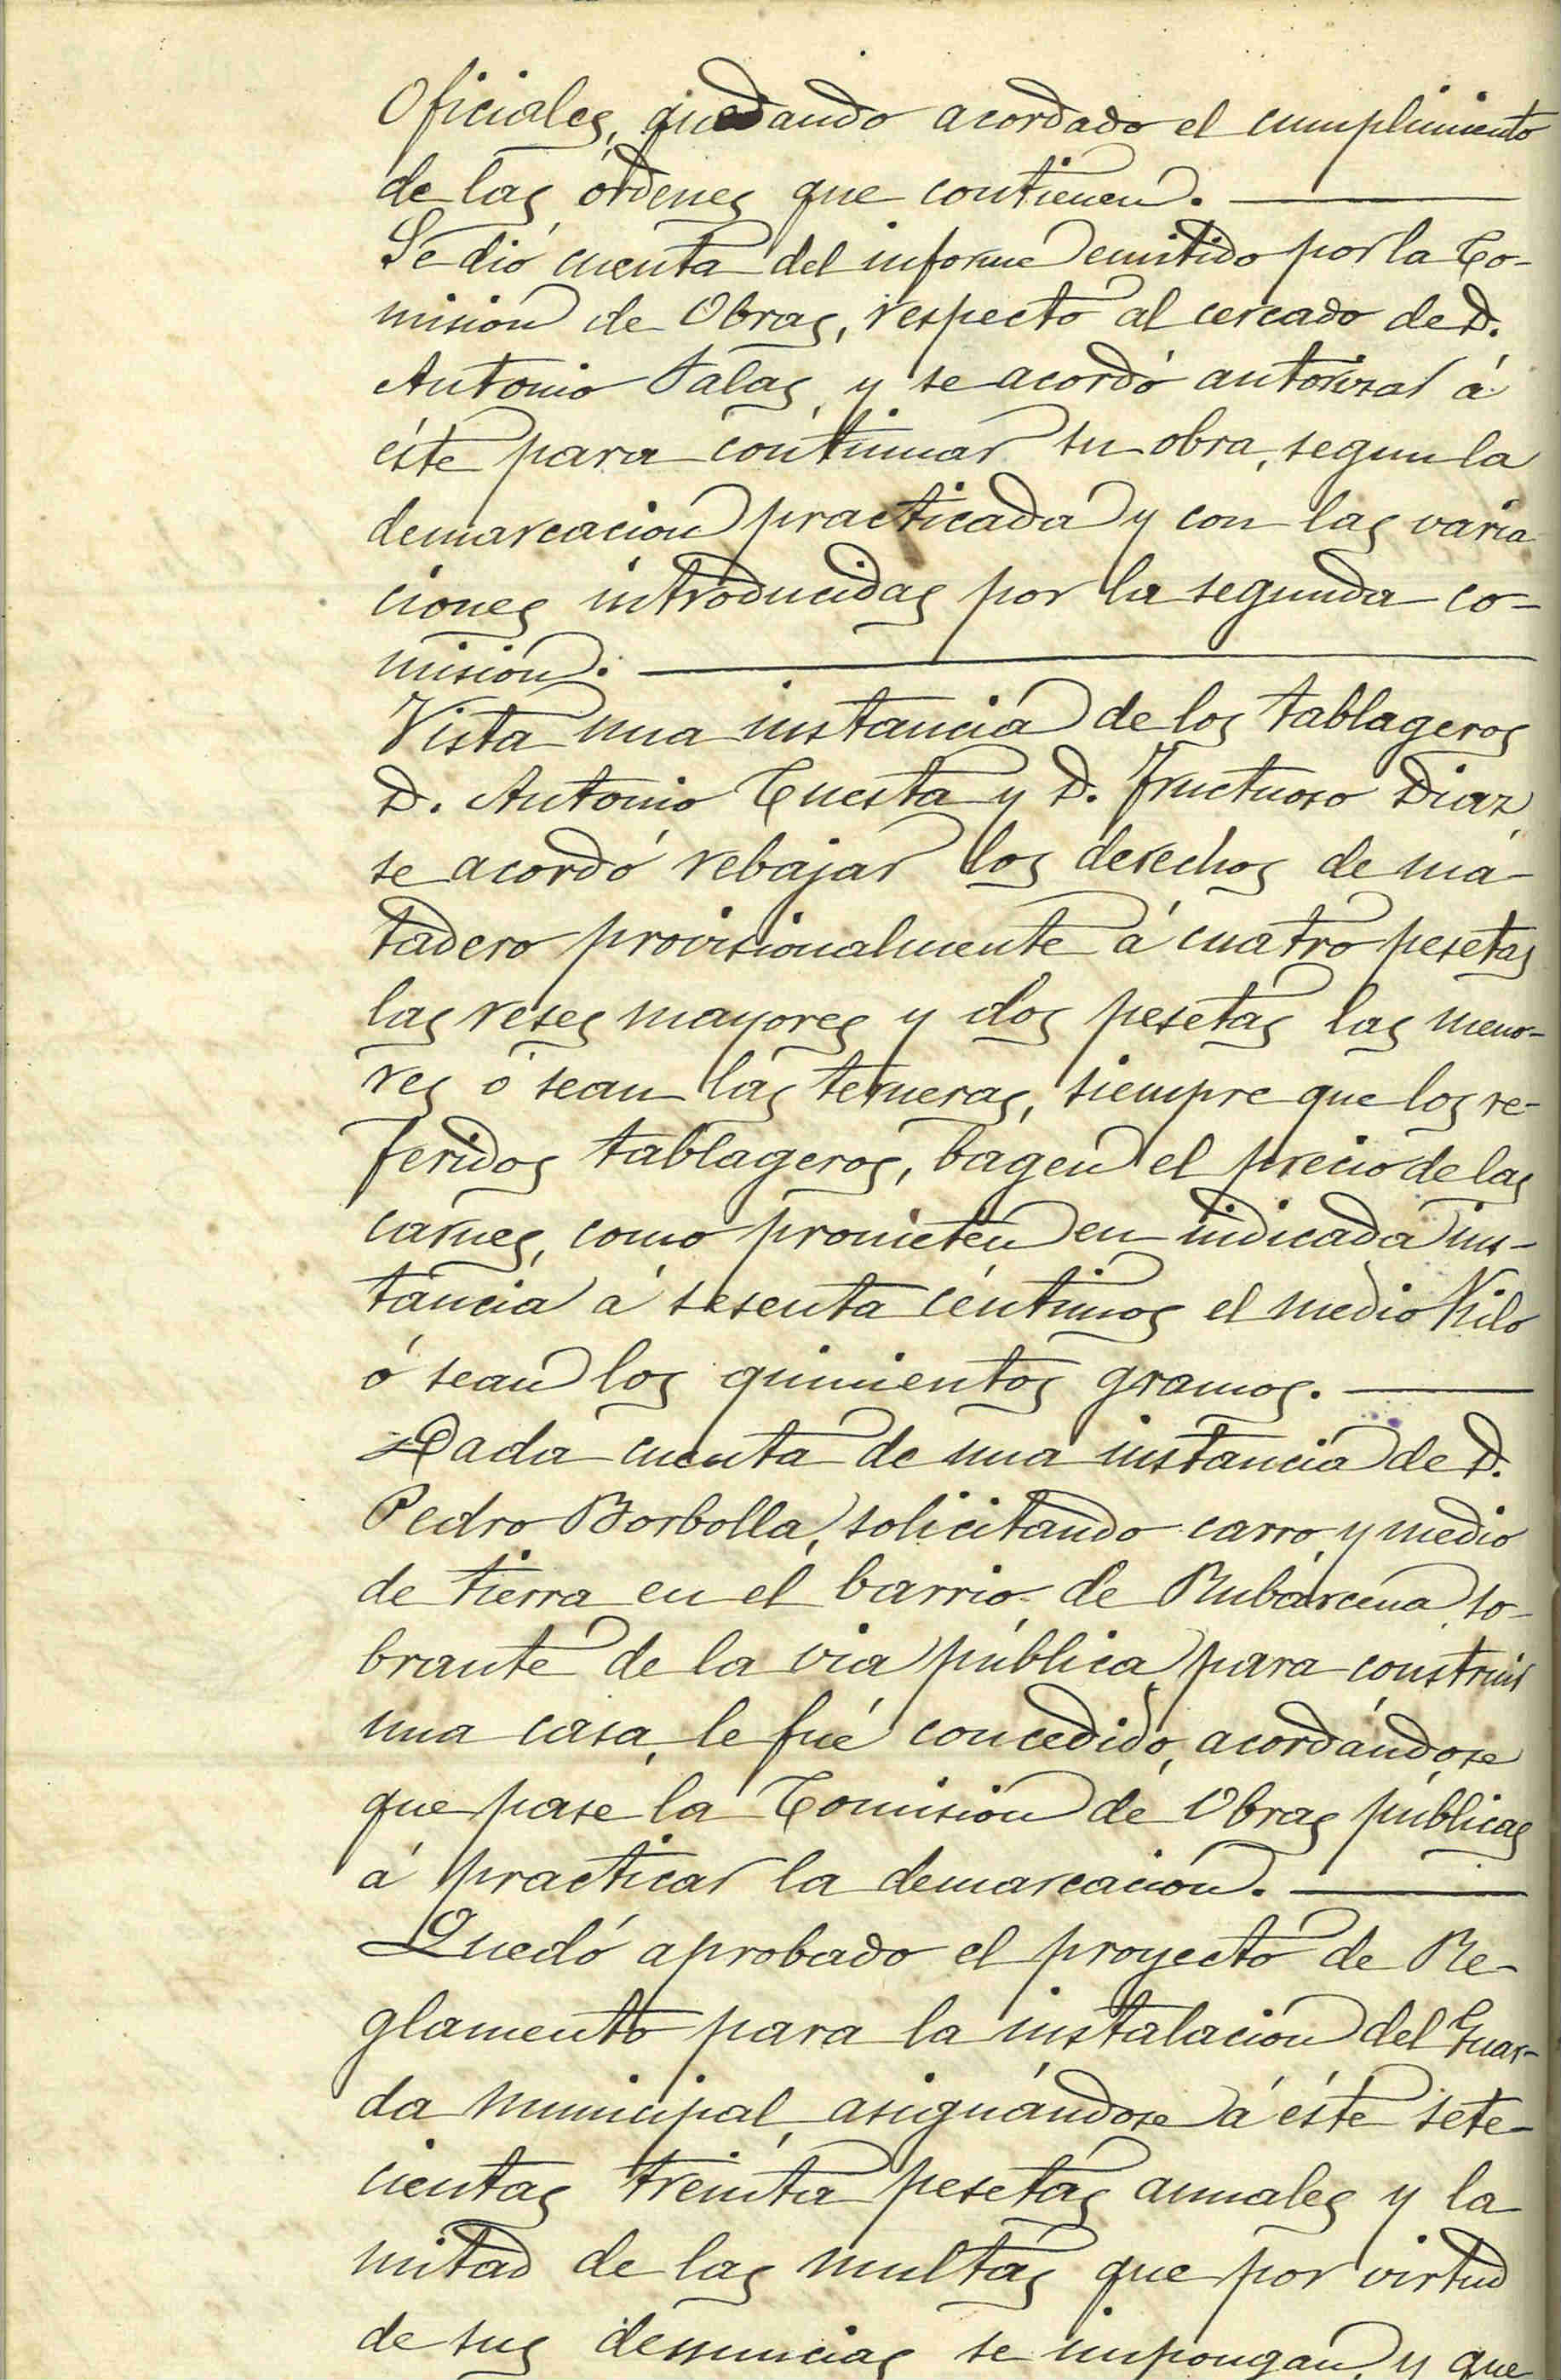 Oficiales, quedando acordado el cumplimiento
de las órdenes que contienen.
Se dió cuenta del informe emitido por la Co-
mision de Obras, respecto al cercado de D.
Antonio Salas, y se acordó autorizar á
éste para continuar su obra, segun la
demarcacion practicada y con las varia
ciones introducidas por la segunda co-
mision.
Vista una instancia de los tablageros
D. Antonio Cuesta y D. Fructuoso Diaz,
se acordó rebajar los derechos de ma-
tadero provisionalmente á cuatro pesetas
las reses mayores y dos pesetas las meno-
res ó sean las terneras, siempre que los re-
feridos tablageros, bagen el precio de las
carnes, como prometen en indicada ins-
tancia á sesenta céntimos el medio Kilo
ó sean los quinientos gramos.
Dada cuenta de una instancia de D.
Pedro Borbolla, solicitando carro y medio
de tierra en el barrio de Rubárcena so-
brante de la via pública, para construir
una casa, le fué concedido, acordándose
que pase la Comision de Obras públicas
á practicar la demarcacion.
Quedó aprobado el proyecto de Re-
glamento para la instalacion del Guar-
da municipal, asignándose á éste sete-
cientas treinta pesetas anuales y la
mitad de las multas que por virtud
de sus denuncias se impongan, y que